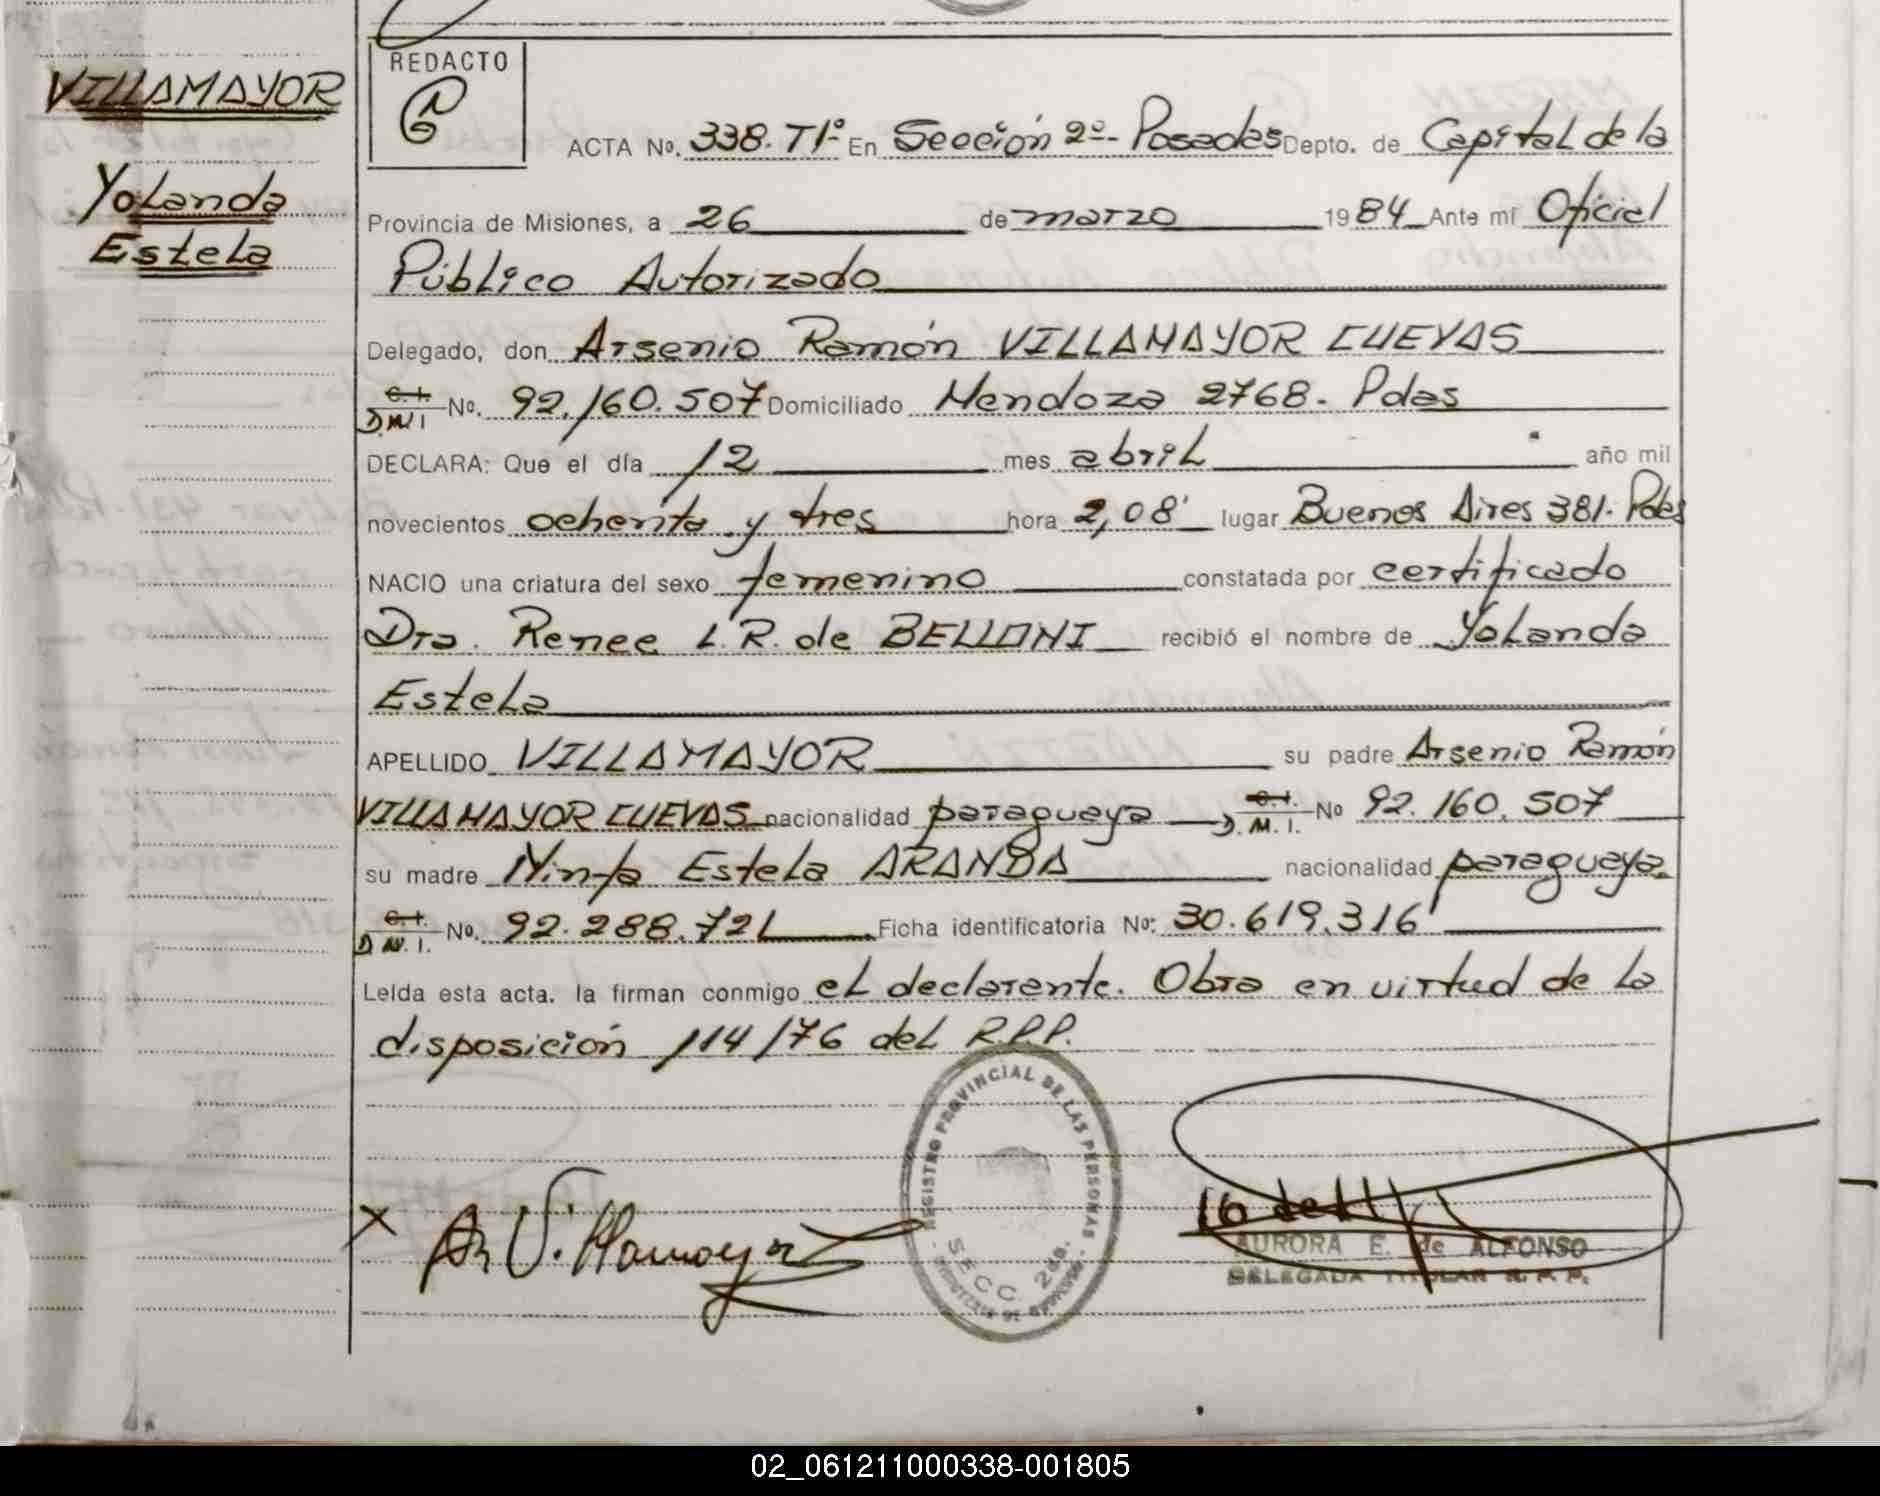 VILLAMAYOR
Yolanda
Estela
REDACTO
ACTA No. 338. T1º En Sección 2º- Posadas Depto. de Capital de la
Provincia de Misiones, a 26 de marzo 1984 Ante mí Oficial
Público Autorizado
Delegado, don Arsenio Ramón VILLAMAYOR CUEVAS
C.I. D.N.I No. 92.160.507 Domiciliado Mendoza 2768. Pdas
DECLARA: Que el día 12 mes abril año mil
novecientos ochenta y tres hora 2,08' lugar Buenos Aires 381. Pdas
NACIO una criatura del sexo femenino constatada por certificado
Dra. Renee L.R. de BELLONI recibió el nombre de Yolanda
Estela
APELLIDO VILLAMAYOR su padre Arsenio Ramón
VILLAMAYOR CUEVAS nacionalidad paraguaya C.I. D.N.I. No 92.160.507
su madre Ninfa Estela ARANDA nacionalidad paraguaya.
C.I. D.N.I. No. 92.288.721 Ficha identificatoria No: 30.619.316
Leída esta acta. la firman conmigo el declarante. Obra en virtud de la
disposición 114/76 del R.P.P.
REGISTRO PROVINCIAL DE LAS PERSONAS
SECC. 2da.
X Villamayor
AURORA E. de ALFONSO
DELEGADA TITULAR R.P.P.
02_061211000338-001805